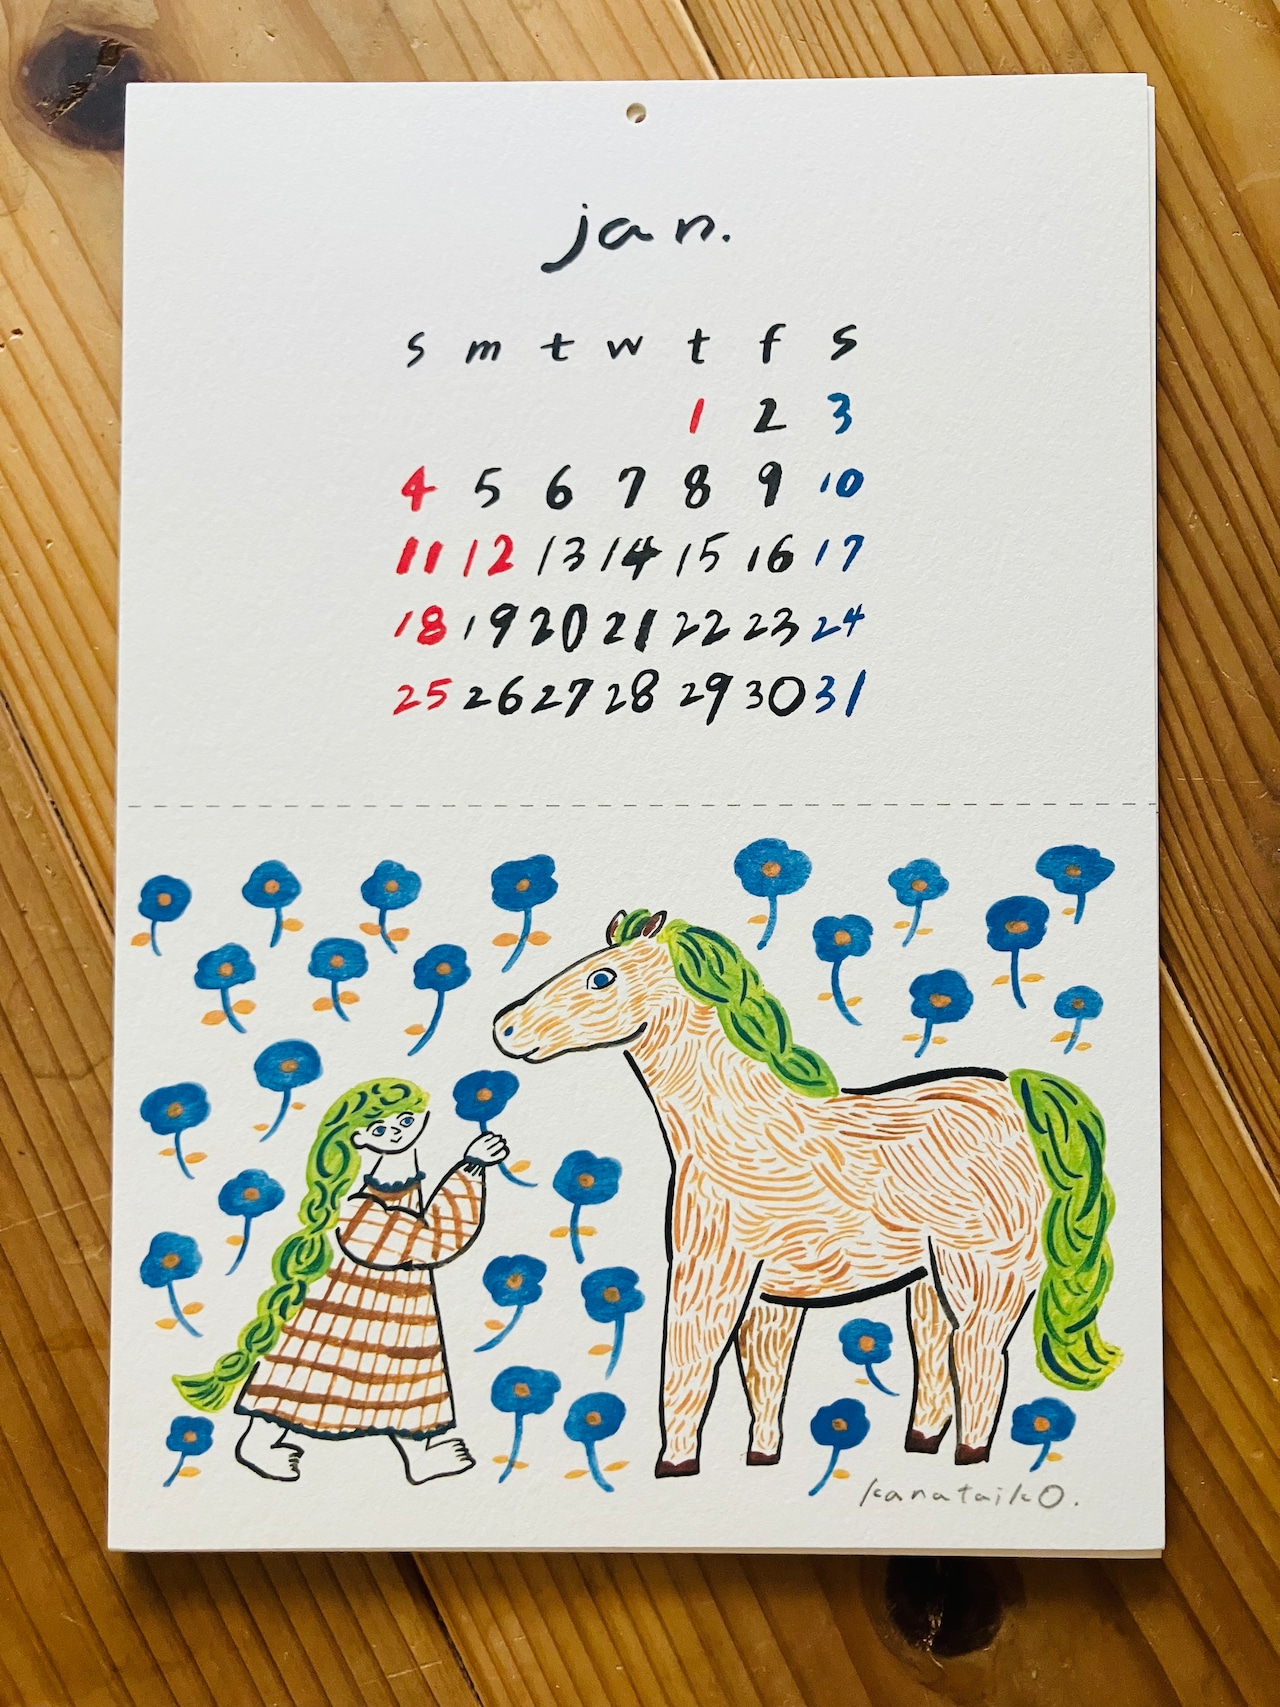 jan.
s m t w t f s
1 2 3
4 5 6 7 8 9 10
11 12 13 14 15 16 17
18 19 20 21 22 23 24
25 26 27 28 29 30 31
kanataiko.